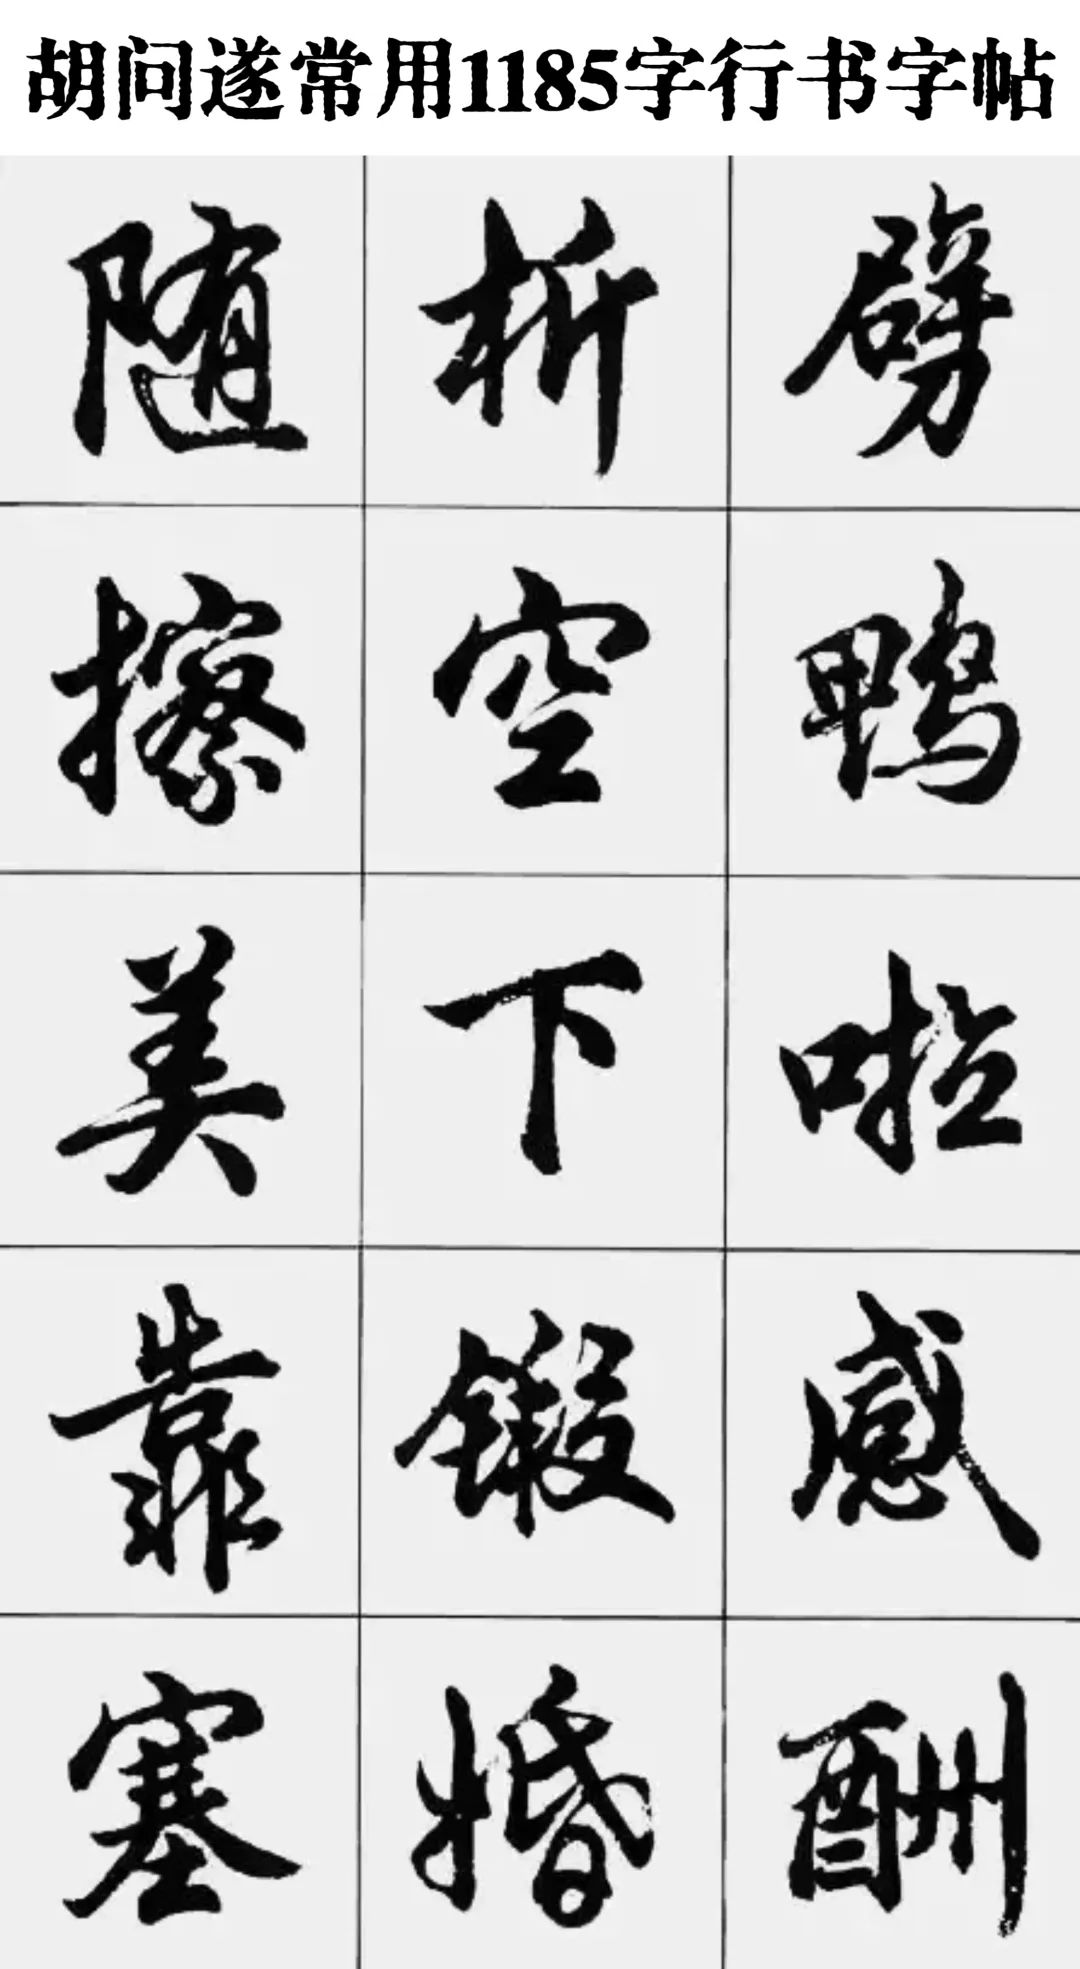 胡问遂常用1185字行书字帖
随 析 劈
擦 空 鸭
美 下 啦
靠 锻 感
塞 婚 酬